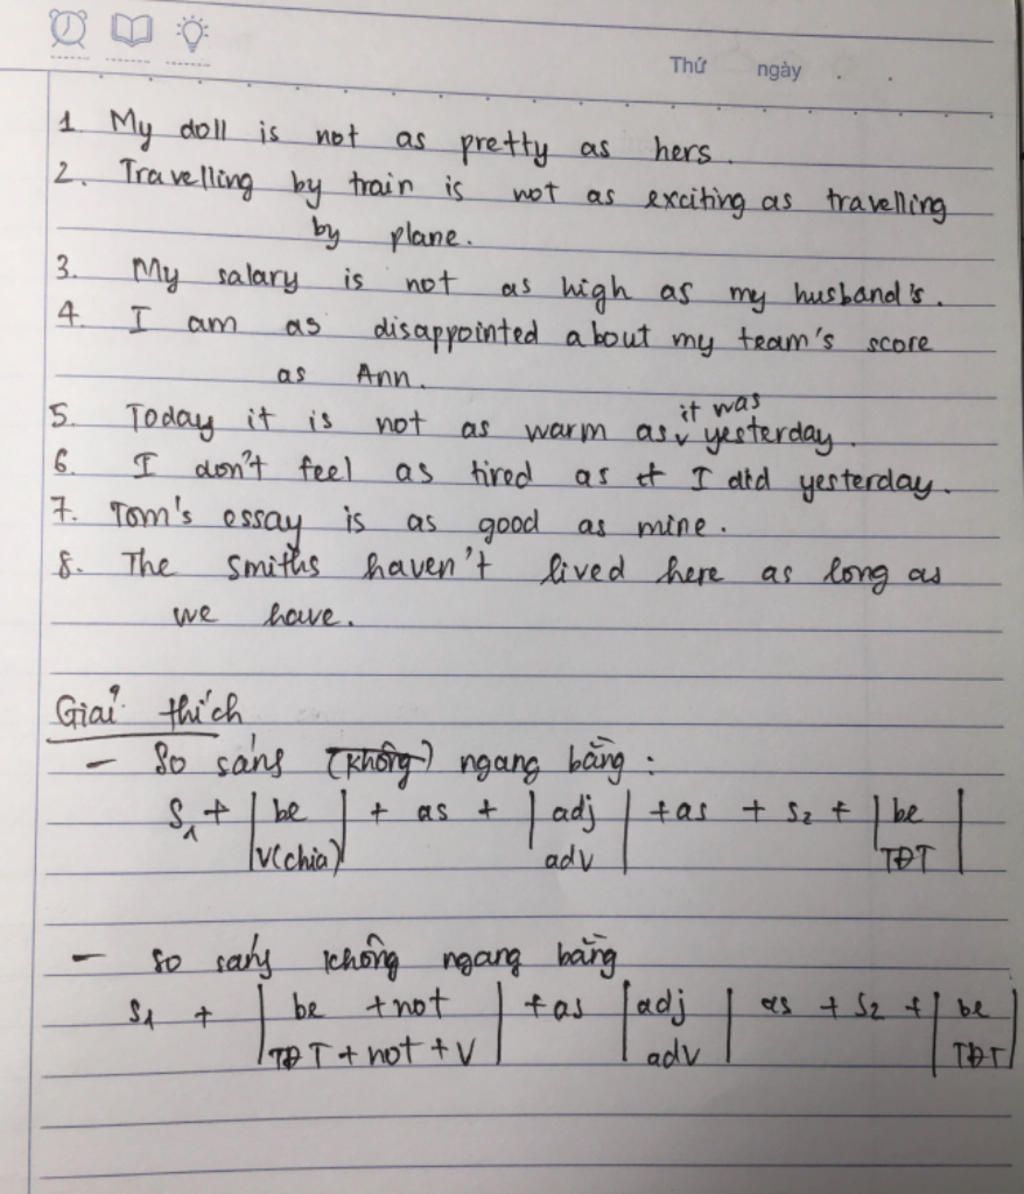 Thứ ngày . .
1. My doll is not as pretty as hers.
2. Travelling by train is not as exciting as travelling
by plane.
3. My salary is not as high as my husband's.
4. I am as disappointed about my team's score
as Ann.
it was
5. Today it is not as warm as yesterday.
6. I don't feel as tired as I did yesterday.
7. Tom's essay is as good as mine.
8. The Smiths haven't lived here as long as
we have.
Giải thích
- So sánh (không) ngang bằng :
S1 + | be | + as + | adj | + as + S2 + | be |
| V(chia) | adv | TĐT |
- So sánh không ngang bằng
S1 + | be + not | + as | adj | as + S2 + | be |
| TĐT + not + V | adv | TĐT |